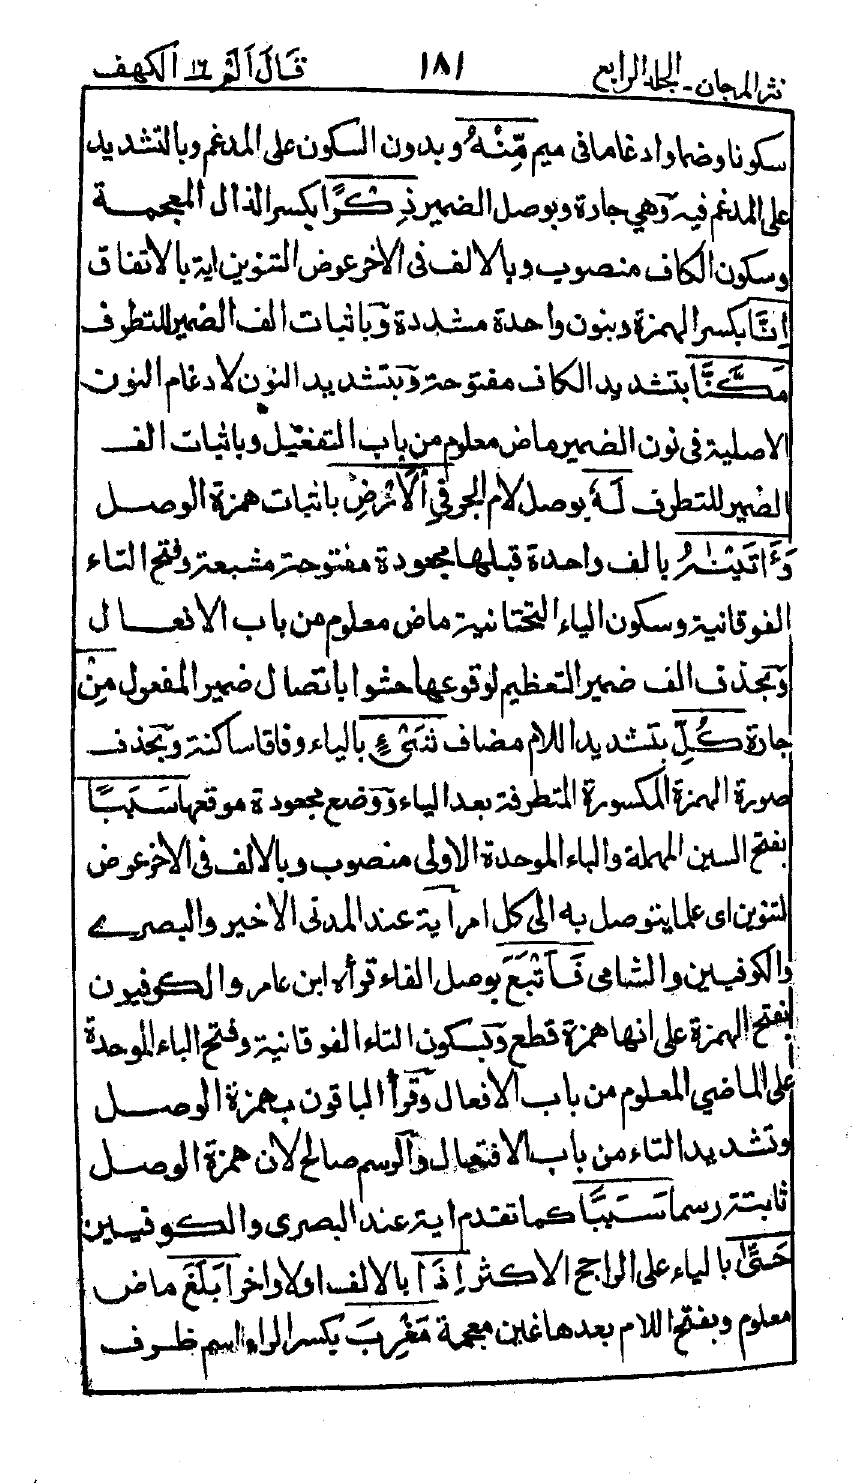 نثر المرجان - الجلد الرابع ١٨١ قَالَ اَلَمْ ١٦ الكهف
سكونا وضما وادغاما فى ميم مِّنْهُ وبدون السكون على المدغم وبالتشديد
على المدغم فيه وهي جارة وبوصل الضمير ذِكْرًا بكسر الذال المعجمة
وسكون الكاف منصوب وبالالف فى الأخر عوض التنوين اية بالاتفاق
اِنَّا بكسر الهمزة وبنون واحدة مشددة وباثبات الف الضمير للتطرف
مَكَّنَّا بتشديد الكاف مفتوحة وبتشديد النون لادغام النون
الاصلية فى نون الضمير ماض معلوم من باب التفعيل وباثبات الف
الضمير للتطرف لَهٗ بوصل لام الجر فِي الْاَرْضِ باثبات همزة الوصل
وَءَاتَيْنٰهُ بالف واحدة قبلها مجعودة مفتوحة مشبعة وفتح التاء
الفوقانية وسكون الياء التحتانية ماض معلوم من باب الافعال
وبحذف الف ضمير التعظيم لوقوعها حشوا باتصال ضمير المفعول مِنْ
جارة كُلِّ بتشديد اللام مضاف شَىْءٍ بالياء وفاقا ساكنة وبحذف
صورة الهمزة المكسورة المتطرفة بعد الياء ووضع مجعودة موقعها سَبَبًا
بفتح السين المهملة والباء الموحدة الاولى منصوب وبالالف فى الأخر عوض
التنوين اى علما يتوصل به الى كل امر اية عند المدنى الاخير والبصرے
والكوفيين والشامى فَاَتْبَعَ بوصل الفاء قرأه ابن عامر والكوفيون
بفتح الهمزة على انها همزة قطع وبسكون التاء الفوقانية وفتح الباء الموحدة
على الماضي المعلوم من باب الافعال وقرأ الباقون بهمزة الوصل
وتشديد التاء من باب الافتعال والرسم صالح لان همزة الوصل
ثابتة رسما سَبَبًا كما تقدم اية عند البصرى والكوفيين
حَتّٰى بالياء على الراجح الاكثر اِذَا بالالف اولا واخرا بَلَغَ ماض
معلوم وبفتح اللام بعدها غين معجمة مَغْرِبَ بكسر الراء اسم ظرف